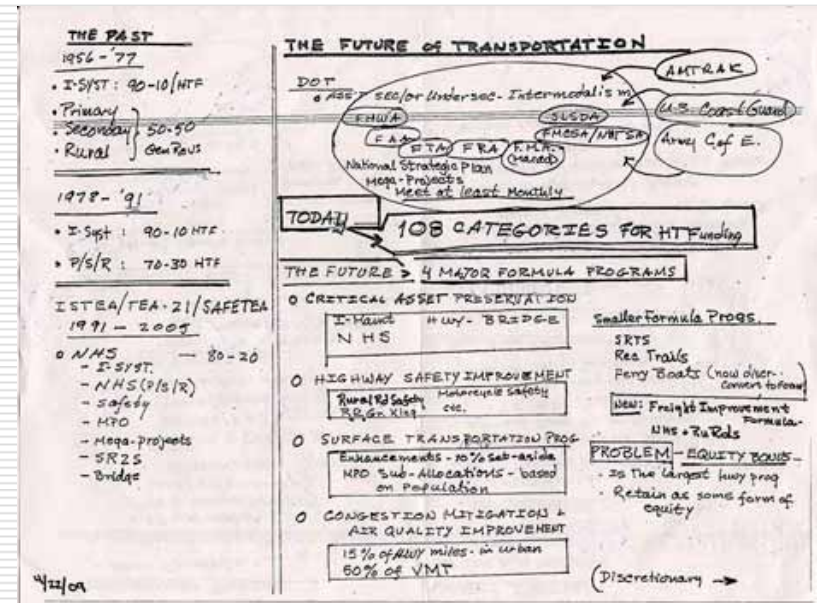 THE PAST
1956 - '77
• I-SYST: 90-10/HTF
• Primary
• Secondary } 50-50
• Rural } Gen Revs
1978 - '91
• I-Syst: 90-10 HTF
• P/S/R: 70-30 HTF
ISTEA/TEA-21/SAFETEA
1991 - 2005
o NHS — 80-20
- I-SYST.
- NHS (P/S/R)
- Safety
- MPO
- Mega-projects
- SR2S
- Bridge
4/22/09
THE FUTURE of TRANSPORTATION
DOT
• Asst Sec/or Undersec - Intermodalism
FHWA SLSDA
FAA FTA FRA FMCSA/NHTSA
National Strategic Plan
Mega-Projects
Meet at least Monthly
AMTRAK
U.S. Coast Guard
Army C of E.
TODAY
108 CATEGORIES FOR HTFunding
THE FUTURE > 4 MAJOR FORMULA PROGRAMS
o CRITICAL ASSET PRESERVATION
I-Maint HWY-BRIDGE
NHS
o HIGHWAY SAFETY IMPROVEMENT
Rural Rd Safety Motorcycle Safety
RR Gr Xing etc.
o SURFACE TRANSPORTATION PROG
Enhancements - 10% set-aside
MPO Sub-Allocations - based
on Population
o CONGESTION MITIGATION +
AIR QUALITY IMPROVEMENT
15% of HWY miles - in urban
50% of VMT
Smaller Formula Progs.
SRTS
Rec Trails
Ferry Boats (now discr.
NEW: Freight Improvement
Formula-
NHS + RuRds
PROBLEM - EQUITY BONUS -
• Is the largest hwy prog
• Retain as some form of
equity
(Discretionary →